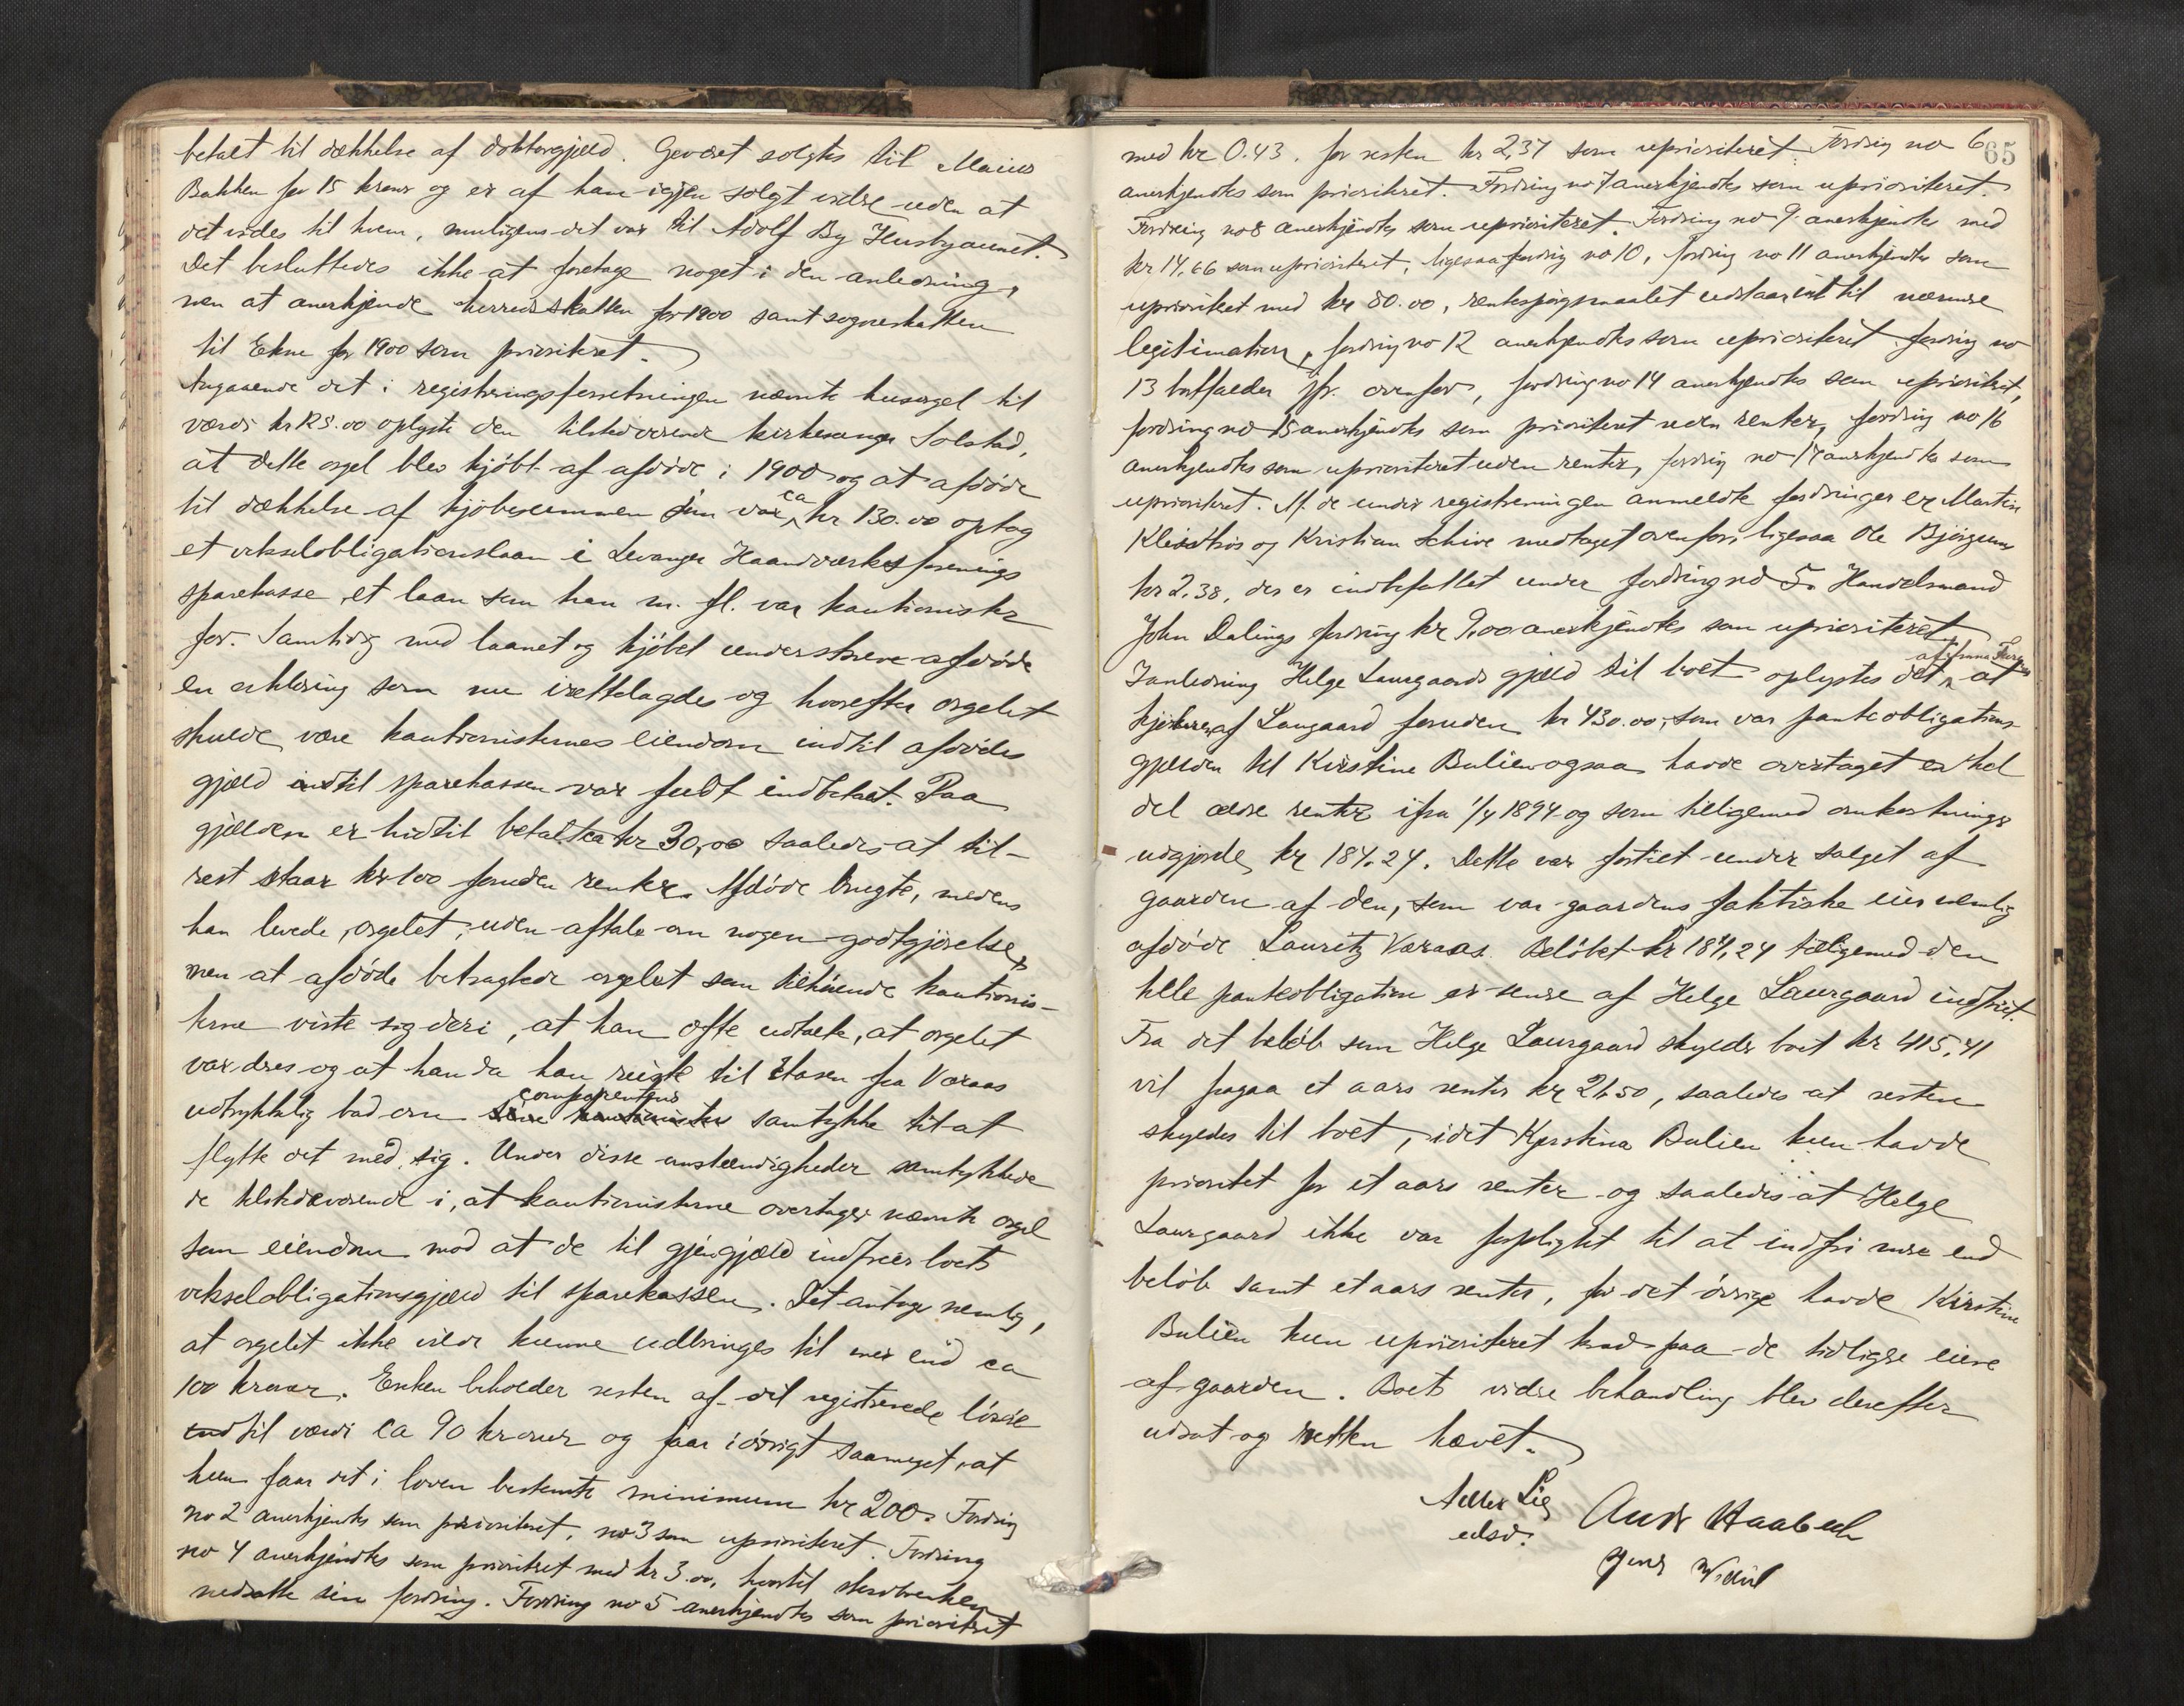 betalt til dækkelse af doktorgjæld. Geværet solgtes til
Bakken for 15 kroner og er af ham igjen solgt vidre uden at
det vides til hvem, muligens det var til Adolf By Husbyaunet.
Det besluttedes ikke at foretage noget i den anledning,
men at anerkjende herredsskatten for 1900 samt sogneskatten
til Ekne for 1900 som prioriteret.
Angaaende det i registreringsforretningen nævnte husorgel til
værdi kr 125.00 oplyste den tilstedværende kirkesanger Solstad,
at dette orgel blev kjöbt af afdöde i 1900 og at afdöde
til dækkelse af kjöbesummen var ca kr 130.00 optog
et vekselobligationslaan i Levanger Haandværkesforenings
sparekasse, et laan som han m. fl. var kautionister
for. Samtidig med laanet og kjöbet underskrev afdöde
en erklæring som nu irettelagdes og hvorefter orgelet
skulde være kautionisternes eiendom indtil afdödes
gjæld indtil sparekassen var fuldt indbetalt. Paa
gjælden er hidtil betalt ca kr 30,00 saaledes at til-
rest staar kr 100 foruden renter. Afdöde brugte, medens
han levede, orgelet, uden aftale om nogen godtgjörelse,
men at afdöde betragtede orgelet som tilhörende kautionis-
terne viste sig deri, at han ofte udtalte, at orgelet
var deres og at han da han reiste til Åsen fra Væraas
udtrykkelig bad om comparentens samtykke til at
flytte det med sig. Under disse omstændigheder samtykkede
de tilstedeværende i, at kautionisterne overtager nævnte orgel
som eiendom mod at de til gjengjæld indfrier boets
vekselobligationsgjæld til sparekassen. Det antoges nemlig,
at orgelet ikke vilde kunne udbringes til mer end ca
100 kroner. Enken beholder resten af det registrerede lösöre
til værdi ca 90 kroner og faar iövrigt saameget, at
hun faar det i loven bestemte minimum kr 200. Fordring
no 2 anerkjendtes som prioriteret, no 3 som uprioriteret. Fordring
no 4 anerkjendtes som prioritet med kr 3.00, hvortil
nedsatte sin fordring. Fordring no 5 anerkjendtes som prioritet
65
med kr 0.43. for resten kr 2,37 som uprioriteret. Fordring no 6
anerkjendtes som prioriteret. Fordring no 7 anerkjendtes som uprioriteret.
Fordring no 8 anerkjendtes som uprioriteret. Fordring no 9 anerkjendtes med
kr 14.66 som uprioriteret, ligesaa fordring no 10, fordring no 11 anerkjendtes som
uprioritet med kr 80.00, rentespörgsmaalet udstaar til nærmere
legitimation, fordring no 12 anerkjendtes som uprioriteret. fordring no
13 bortfalder jfr. ovenfor, fordring no 14 anerkjendtes som uprioritet,
fordring no 15 anerkjendtes som prioriteret uden renter, fordring no 16
anerkjendtes som uprioriteret uden renter, fordring no 17 anerkjendtes som
uprioriteret. Af de under registreringen anmeldte fordringer er Martin
og Kristian Schive medtaget ovenfor, ligesaa Ole
kr 2.38, der er indbefattet under fordring no 5. Handelsmand
John Dalings fordring kr 9,00 anerkjendtes som uprioriteret.
I anledning Helge Laurgaards gjæld til boet oplystes det at
kjöberen af Laugaard foruden kr 430.00, som var panteobligations-
gjælden til Kirstine Bulien ogsaa havde overtaget en hel
del ældre renter ifra 1/4 1894 og som tilligemed omkostninger
udgjorde kr 184.24. Dette var fortiet under salget af
gaarden af den, som var gaardens faktiske eier nemlig
afdöde Lauritz Væraas. Belöbet kr 184,24 tilligemed den
hele panteobligation er senere af Helge Laurgaard indfriet.
Fra det belöb som Helge Laurgaard skylder boet kr 415,41
vil fragaa et aars renter kr 21,50, saaledes at resten
skyldes til boet, idet Kjerstina Bulien kun havde
prioritet for et aars renter og saaledes at Helge
Laurgaard ikke var forpligtet til at indfri mere end
belöb samt et aars renter, for det övrige havde Kirstine
Bulien kun uprioriteret krav paa de tidligere eiere
af gaarden. Boets vidre behandling blev derefter
udsat og retten hævet.
Lie
edsv.